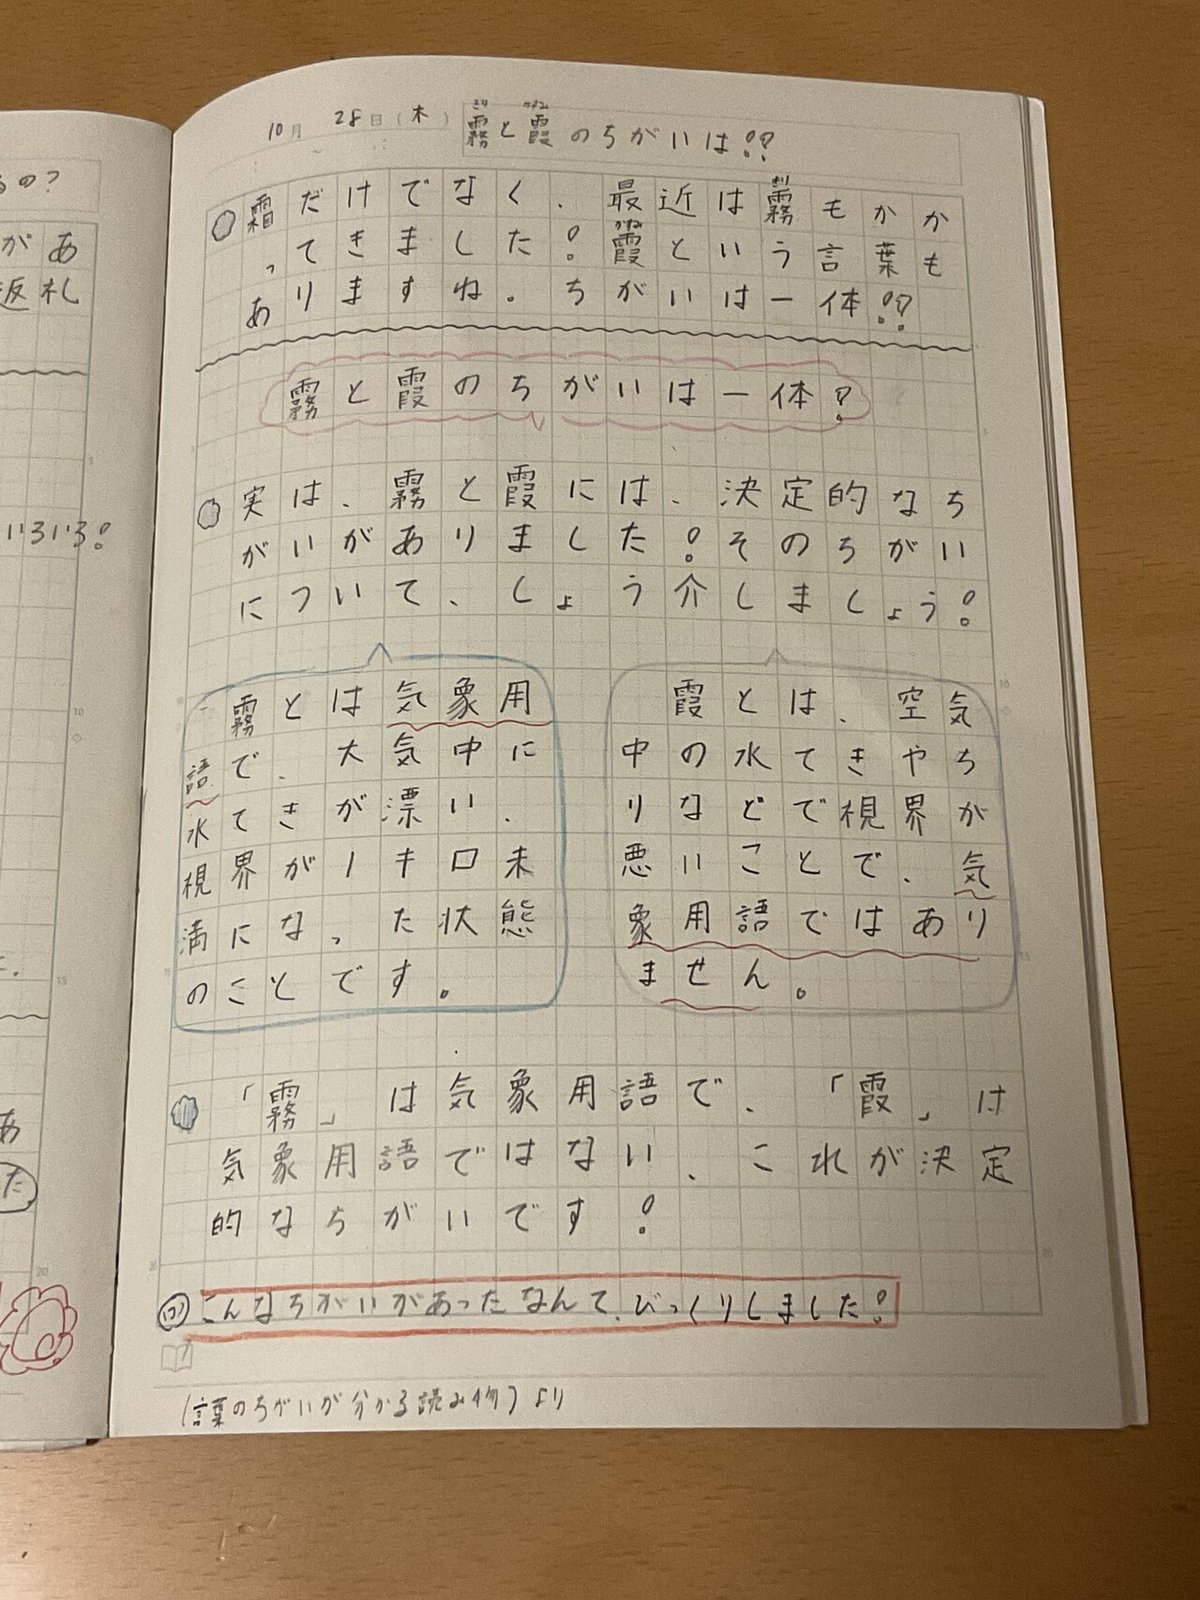 るの?
があ
返札
いろいろ!
た
10月 28日(木) 霧と霞のちがいは!?
きり かすみ
霜だけでなく、最近は霧もかか
きり
ってきました!霞という言葉も
かすみ
ありますね。ちがいは一体!?
霧と霞のちがいは一体?
実は、霧と霞には、決定的なち
がいがありました!そのちがい
について、しょう介しましょう!
霧とは気象用
語で、大気中に
水てきが漂い、
視界が1キロ未
満になった状態
のことです。
霞とは、空気
中の水てきやち
りなどで視界が
悪いことで、気
象用語ではあり
ません。
「霧」は気象用語で、「霞」は
気象用語ではない、これが決定
的なちがいです!
こんなちがいがあったなんて、びっくりしました!
(言葉のちがいが分かる読み物)より